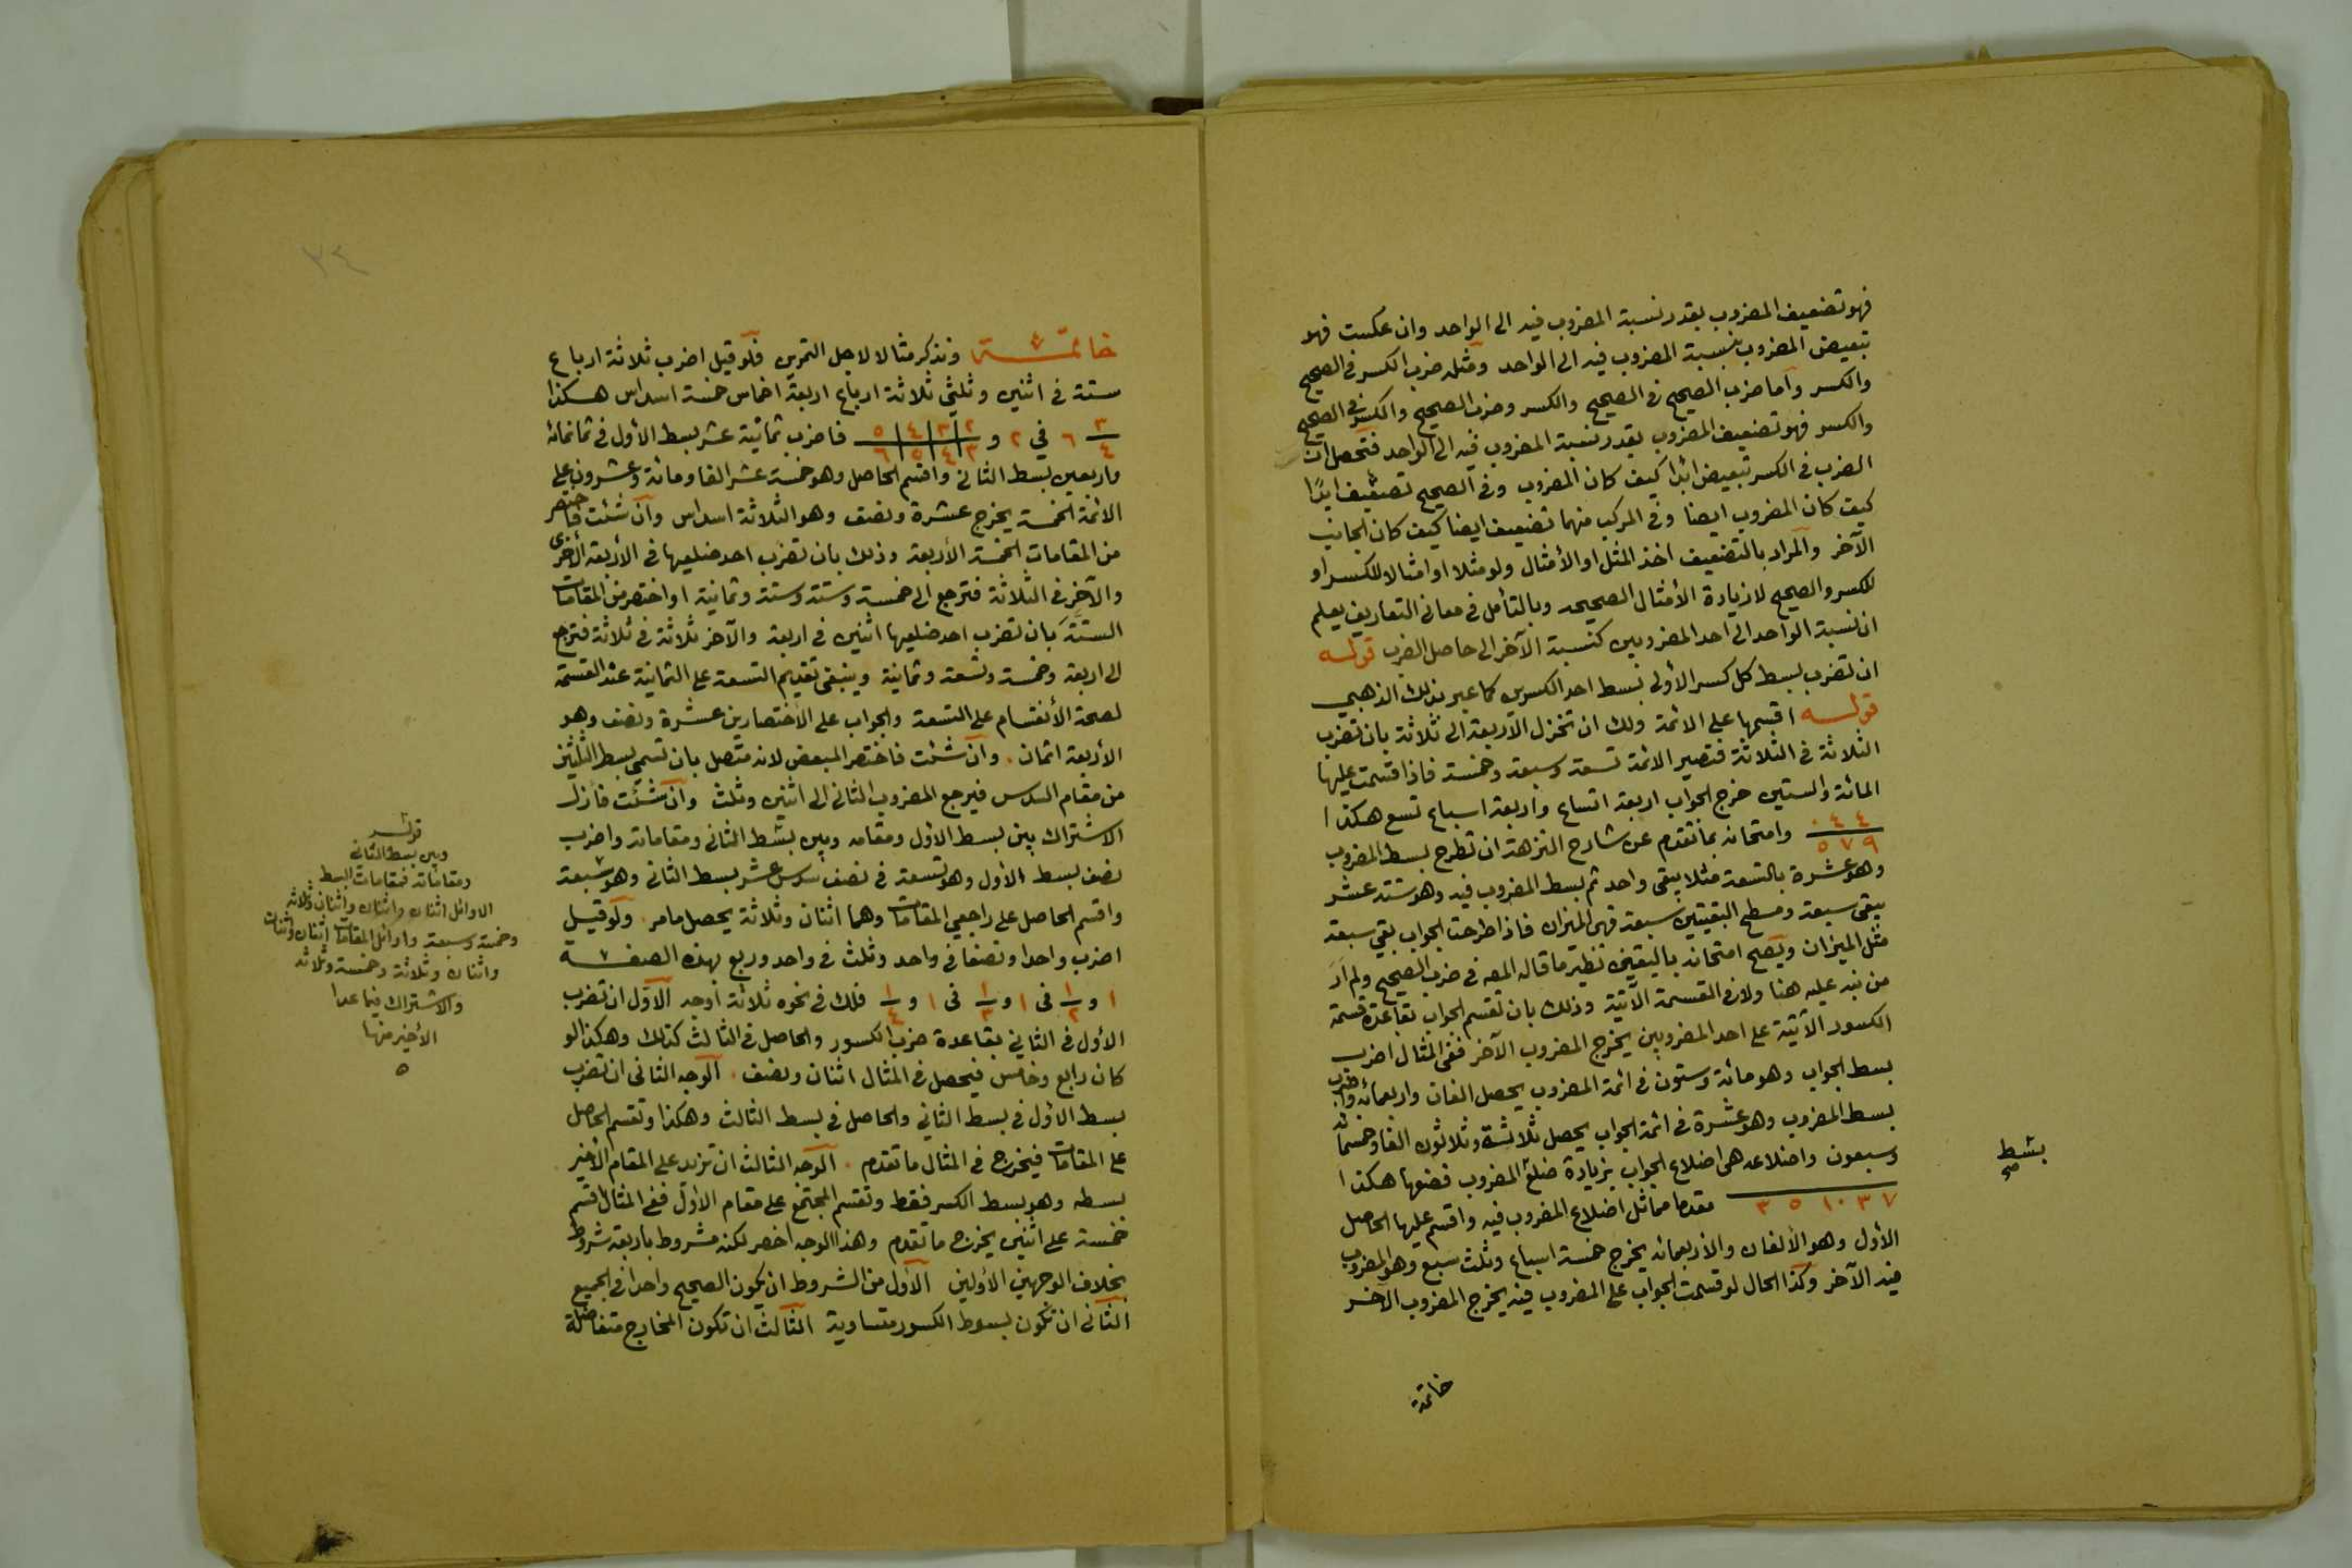 فهو تضعيف المضروب بقدر نسبة المضروب فيه الى الواحد وان عكست فهو
تبعيض المضروب بنسبة المضروب فيه الى الواحد ومثله ضرب الكسر في الصحيح
والكسر وأما ضرب الصحيح في الصحيح والكسر وضرب الصحيح والكسر في الصحيح
والكسر فهو تضعيف المضروب بقدر نسبة المضروب فيه الى الواحد فتحصل ان
الضرب في الكسر تبعيض ابدا كيف كان المضروب وفي الصحيح تضعيف ابدًا
كيف كان المضروب ايضا وفي المركب منهما تضعيف ايضا كيف كان الجانب
الآخر والمراد بالتضعيف اخذ المثل او الأمثال ولو مثلا او امثالا للكسر او
للكسر والصحيح لا زيادة الأمثال الصحيحه وبالتأمل في معاني التعاريف يعلم
ان نسبة الواحد الى احد المضروبين كنسبة الآخر الى حاصل الضرب قوله
ان تضرب بسط كل كسر الأولى بسط احد الكسرين كما عبر بذلك الذهبي
قوله اقسمها على الائمة ولك ان تختزل الأربعة الى ثلاثة بان تضرب
الثلاثة في الثلاثة فتصير الائمة تسعة وسبعة وخمسة فاذا قسمت عليها
المائة والستين خرج الجواب اربعة اتساع واربعة اسباع تسع هكذا
٠ ٤ ٤ / ٥ ٧ ٩ وامتحانه بما تقدم عن شارح النزهة ان تطرح بسط المضروب
وهو عشرة بالتسعة مثلا يبقى واحد ثم بسط المضروب فيه وهو ستة عشر
يبقى سبعة ومسطح البقيتين سبعة فهي الميزان فاذا طرحت الجواب بقي سبعة
مثل الميزان ويصح امتحانه باليقين نظير ما قاله المص في ضرب الصحيح ولم أرَ
من نبه عليه هنا ولا في القسمة الآتية وذلك بان تقسم الجواب بقاعدة قسمة
الكسور الآتية على احد المضروبين يخرج المضروب الآخر ففي المثال اضرب
بسط الجواب وهو مائة وستون في ائمة المضروب يحصل الفان واربعمائة واضرب
بسط المضروب وهو عشرة في ائمة الجواب يحصل ثلاثة وثلاثون الفا وخمسمائة
وسبعون واضلاعه هى اضلاع الجواب بزيادة ضلع المضروب فضعها هكذا
٣ ٥ ١٠ ٣ ٧ مقدما مماثل اضلاع المضروب فيه واقسم عليها الحاصل
الأول وهو الألفان والأربعمائة يخرج خمسة اسباع وثلث سبع وهو المضروب
فيه الآخر وكذا الحال لو قسمت الجواب على المضروب فيه يخرج المضروب الآخر
بسط
صح
خاتمة
خاتمة ونذكر مثالا لاجل التمرين فلو قيل اضرب ثلاثة ارباع
ستة في اثنين وثلثي ثلاثة ارباع اربعة اخماس خمسة اسداس هكذا
٣/٤ ٦ في ٢ و ٢/٣ ٣/٤ ٤/٥ ٥/٦ فاضرب ثمانية عشر بسط الأول في ثمانمائة
واربعين بسط الثاني واقسم الحاصل وهو خمسة عشر الفا ومائة وعشرون على
الائمة الخمسة يخرج عشرة ونصف وهو الثلاثة اسداس وان شئت فاختصر
من المقامات الخمسة الأربعة وذلك بان تضرب احد ضلعيها في الأربعة الأخرى
والآخر في الثلاثة فترجع الى خمسة وستة وستة وثمانية او اختصر من المقامات
الستة بان تضرب احد ضلعيها اثنين في اربعة والآخر ثلاثة في ثلاثة فترجع
الى اربعة وخمسة وتسعة وثمانية وينبغى تقديم التسعة على الثمانية عند القسمة
لصحة الأنقسام على التسعة والجواب على الأختصارين عشرة ونصف وهو
الأربعة اثمان. وان شئت فاختصر المبعض لانه متصل بان تسمي بسط الثلثين
من مقام السدس فيرجع المضروب الثاني الى اثنين وثلث وان شئت فأزل
الاشتراك بين بسط الأول ومقامه وبين بسط الثاني ومقاماته واضرب
نصف بسط الأول وهو تسعة في نصف سدس عشر بسط الثاني وهو سبعة
واقسم الحاصل على راجعي المقامات وهما اثنان وثلاثة يحصل ما مر. ولو قيل
اضرب واحدا ونصفا في واحد وثلث في واحد وربع بهذه الصفة
١ و ١/٢ في ١ و ١/٣ في ١ و ١/٤ فلك في نحوه ثلاثة أوجه الأول ان تضرب
الأول في الثاني بقاعدة ضرب الكسور والحاصل في الثالث كذلك وهكذا لو
كان رابع وخامس فيحصل في المثال اثنان ونصف. الوجه الثاني ان تضرب
بسط الأول في بسط الثاني والحاصل في بسط الثالث وهكذا وتقسم الحاصل
على المقامات فيخرج في المثال ما تقدم. الوجه الثالث ان تزيد على المقام الأخير
بسطه وهو بسط الكسر فقط وتقسم المجتمع على مقام الأول ففي المثال اقسم
خمسة على اثنين يخرج ما تقدم وهذا الوجه اخصر لكنه مشروط باربعة شروط
بخلاف الوجهين الأولين الأول من الشروط ان يكون الصحيح واحدا في الجميع
الثاني ان تكون بسوط الكسور متساوية الثالث ان تكون المخارج متفاضلة
قوله
وبين بسط الثاني
ومقاماته فمقامات البسط
الاوائل اثنان واثنان واثنان وثلاثة
وخمسة وسبعة واوائل المقامات اثنان واثنان
واثنان وثلاثة وخمسة وثلاثة
والاشتراك فيما عدا
الأخير منها
٥